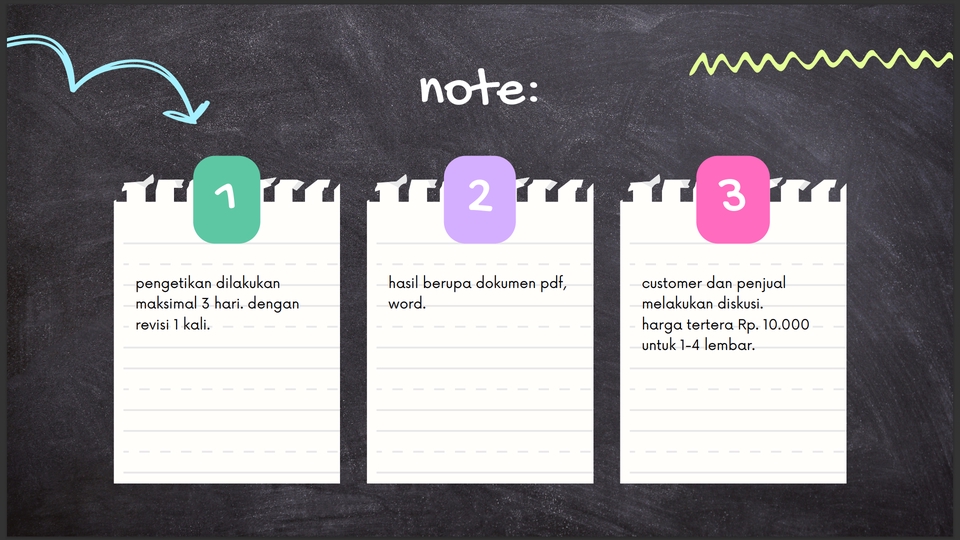 note:
1
pengetikan dilakukan
maksimal 3 hari. dengan
revisi 1 kali.
2
hasil berupa dokumen pdf,
word.
3
customer dan penjual
melakukan diskusi.
harga tertera Rp. 10.000
untuk 1-4 lembar.